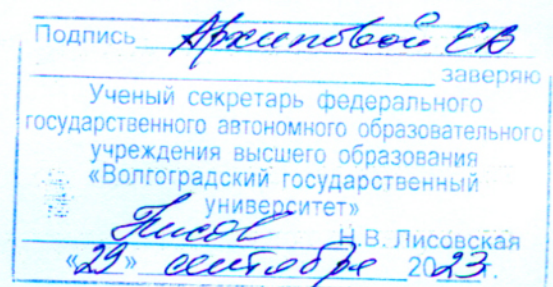 Подпись Архиповой ЕВ
заверяю
Ученый секретарь федерального
государственного автономного образовательного
учреждения высшего образования
«Волгоградский государственный
университет»
Лисов Н.В. Лисовская
«29» сентября 2023 г.